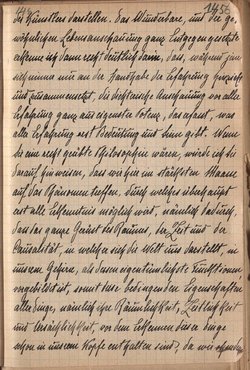 145
des Künstlers darstellen. Das Wunderbare, und der ge-
wöhnlichen Lebensanschauung ganz Entgegengesetzte
erkenne ich dann recht deutlich darin, dass, während jene
sich an der Handhabe der Erfahrung
und zusammensetzt, die dichterische Anschauung vor aller
Erfahrung ganz aus eigenstem Potenz, das erfasst, was
aller Erfahrung erst Bedeutung und Sinn gibt. Wenn
Sie ein recht geübter Philosoph wären, würde ich Sie
darauf hinweisen, dass wir hier im stärksten Maasse
auf das Phänomen treffen, durch welches überhaupt
erst alle Erkenntnis möglich wird, nämlich dadurch,
dass das ganze Gerüst des Raumes, der Zeit und der
Causalität, in welcher sich die Welt uns darstellt, in
unsrem Gehirne, als dessen eigentümlichste Functionen
vorgebildet ist, somit diese bedingenden Eigenschaften
aller Dinge, nämlich ihre Räumlichkeit, Zeitlichkeit
und Ursächlichkeit, vor dem Erkennen dieser Dinge
schon in unsrem Kopfe enthalten sind, da wir